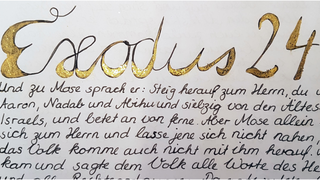 Exodus 24
Und zu Mose sprach er: Steig herauf zum Herrn, du u
Aaron, Nadab und Abihu und siebzig von den Ältes
Israels, und betet an von ferne. Aber Mose allein
sich zum Herrn und lasse jene sich nicht nahen,
das Volk komme auch nicht mit ihm herauf.
kam und sagte dem Volk alle Worte des He